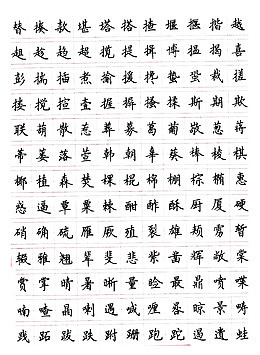 替揍款堪塔搭揸堰揠揩越
趄趁趋超揽提揖博揾揭喜
彭揣插煮揄援搀蛰蛩裁搓
搂搅揎壹握摒揆搔揉斯期欺
联葫散葱葬募葛葡敬葱蒋
蒂落韩朝辜葵棒棱棋
椰植森焚椅棍棉棚棕椭惠
惑逼覃粟棘酣酢酥厨厦硬
硝确硫雁厥殖裂雄颊雳暂
辍雅翘辈斐悲紫凿辉敞棠
赏掌晴暑晰量睑最鼎喷喋
喃喳晶喇遇喊遏晾景畴
践跖跋跌跗跚跑跎遏遗蛙